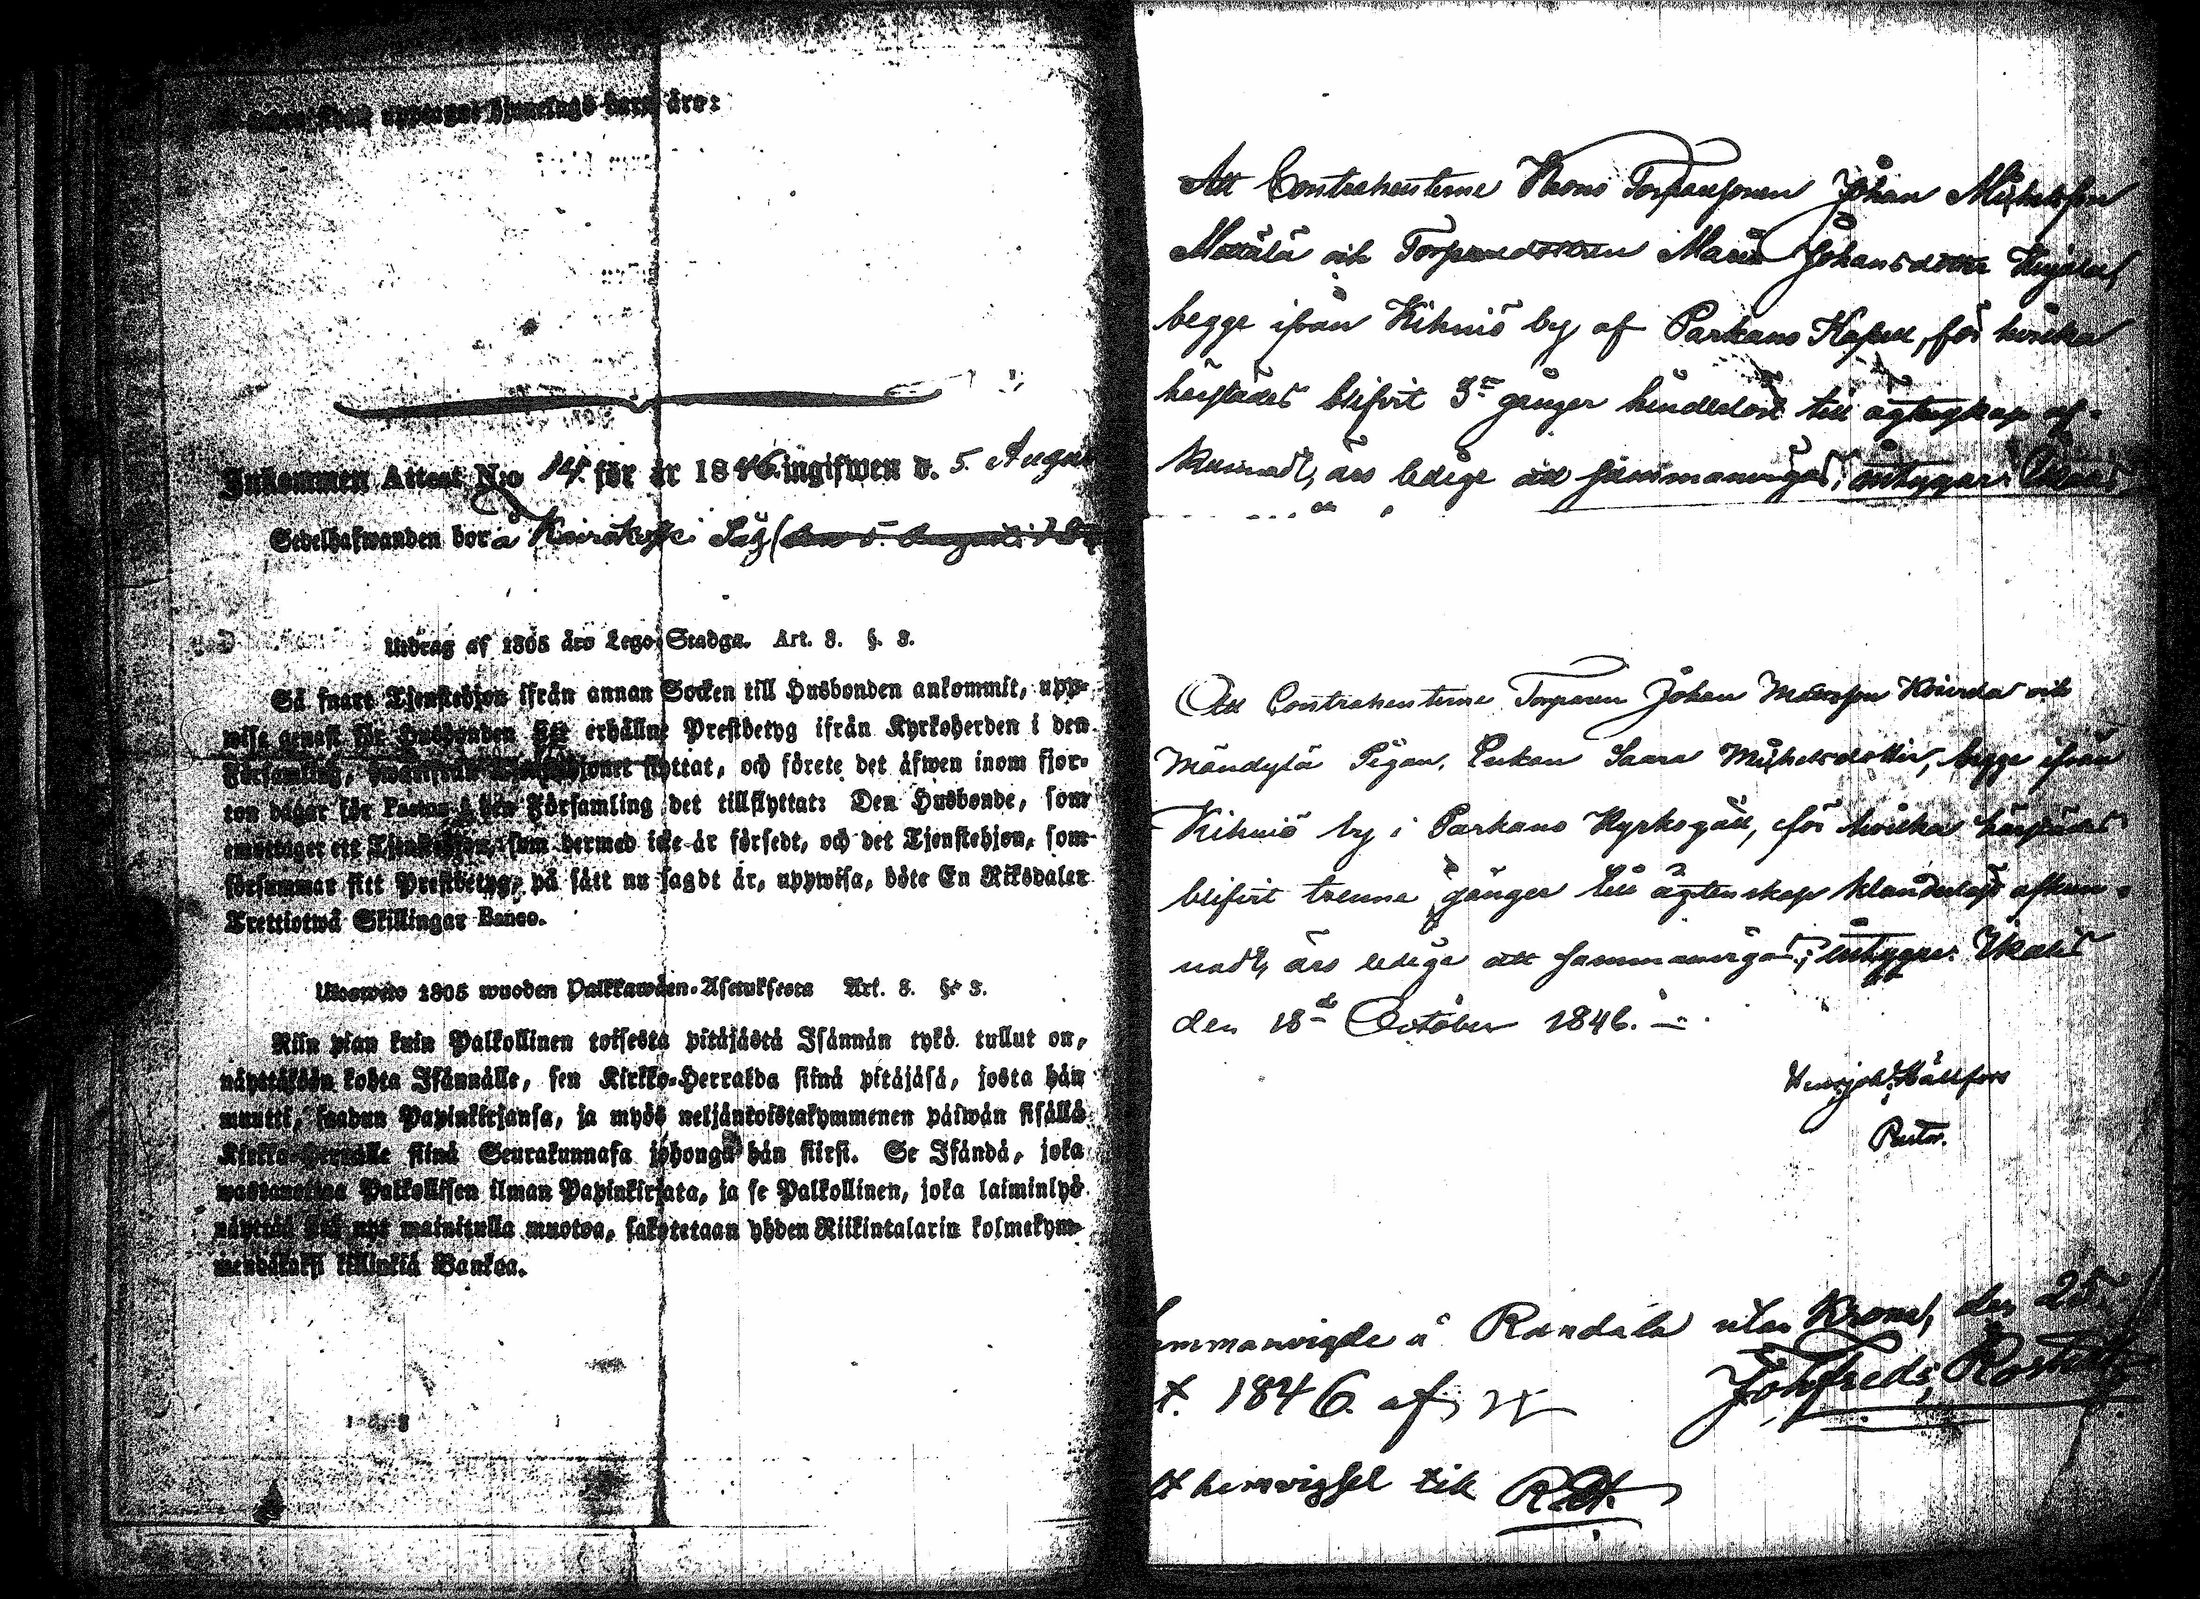 äro:
Inkommen Attest N:o 14. för år 1846. ingifwen d. 5. August
Sedelhafwanden bor å Koirakoski Såg
Utdrag af 1805 års Lego-Stadga. Art. 3. §. 3.
Så snart Tjenstehjon ifrån annan Socken till Husbonden ankommit, upp-
wise genast för Husbonden sitt erhållne Prestbetyg ifrån Kyrkoherden i den
Församling, hwarifrån Tjenstehjonet flyttat, och förete det äfwen inom fjor-
ton dagar för Pastor i den Församling det tillflyttat: Den Husbonde, som
emottager ett Tjenstehjon, som dermed icke är försedt, och det Tjenstehjon, som
försummar sitt Prestbetyg, på sätt nu sagdt är, uppwisa, böte En Riksdaler
Trettiotwå Skillingar Banco.
1805 wuoden Palkkawäen-Asetuksesta Art. 3. §. 3.
Niin pian kuin Palkollinen toisesta pitäjästä Isännän tykö tullut on,
näyttäköön kohta Isännälle, sen Kirkko-Herralda siinä pitäjäsä, josta hän
muutti, saadun Papinkirjansa, ja myös neljäntoistakymmenen päiwän sisällä
Kirkko-Herralle siinä Seurakunnasa johonga hän siirsi. Se Isändä, joka
wastanottaa Palkollisen ilman Papinkirjata, ja se Palkollinen, joka laiminlyö
näyttää sitä nyt mainitulla muotoa, sakotetaan yhden Riikintalarin kolmekym-
mendäkaksi killinkiä Bankoa.
Att Contrahenterne Krono Torparesonen Johan Michelsson
Mattila och Torparedottren Maria Johansdotter
begge ifrån Kihniö by af Parkano Kapell, för hvilka
härstädes blifvit 3:e gånger hinderlöst till ägtenskap af-
kunnadt, äro ledige att sammanvigas; intygar: Ikalis
Att Contrahenterne Torparen Johan Mattsson och
Mändylä Pigan, Enkan Saara Michelsdotter, begge ifrån
Kihniö by i Parkano Kyrkogäll, för hvilka härstädes
blifvit trenne gånger till ägtenskap klanderlöst afkun-
nadt, äro ledige att sammanvigas; intygar: Ikalis
den 18de October 1846.
Pastor.
ammanvigde å Randala utan Krona, den 25
t. 1846. af
hemvigsel tik